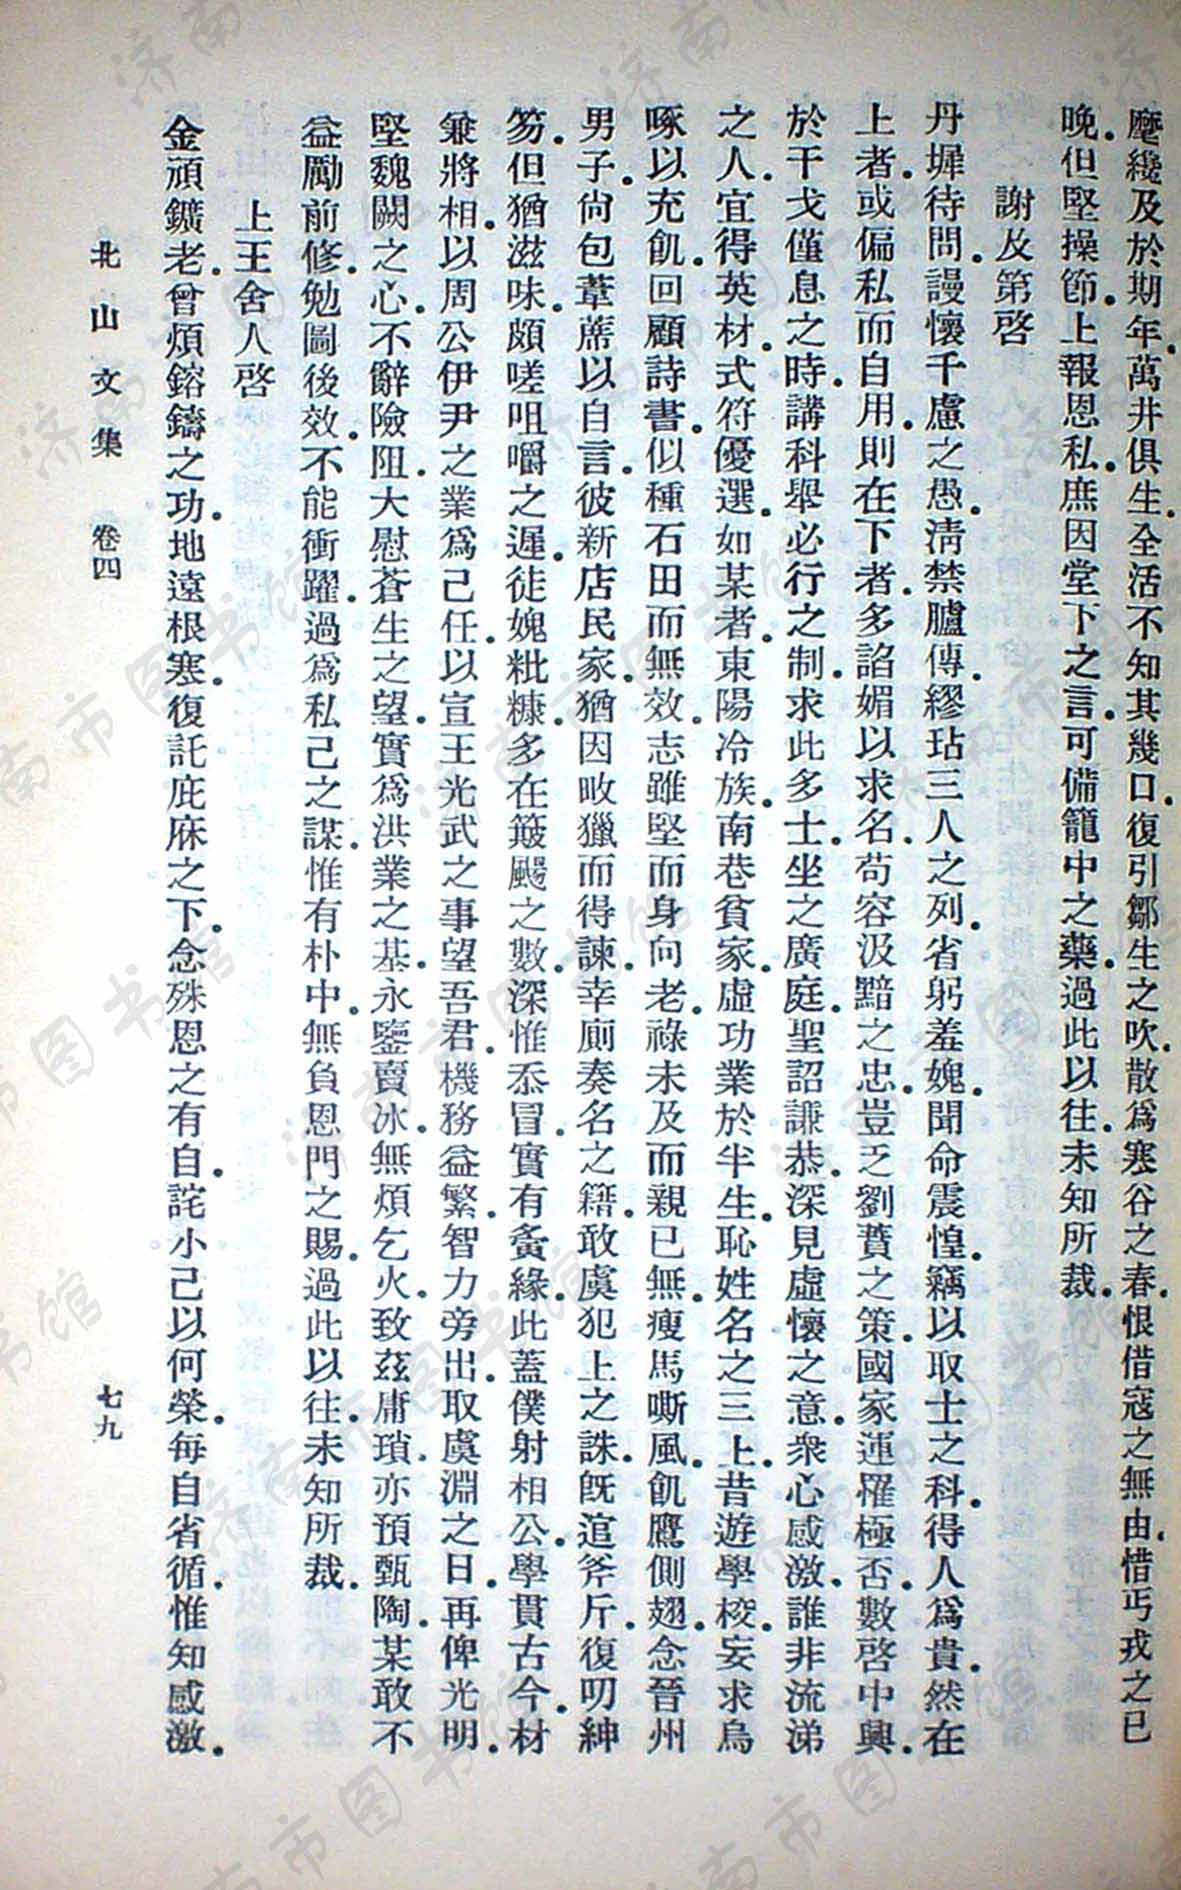 麾纔及於期年萬井俱生全活不知其幾口復引鄒生之吹散爲寒谷之春恨借寇之無由惜丐戎之已
晚但堅操節上報恩私庶因堂下之言可備籠中之藥過此以往未知所裁
謝及第啓
丹墀待問謾懷千慮之愚清禁臚傳繆玷三人之列省躬羞媿聞命震惶竊以取士之科得人爲貴然在
上者或偏私而自用則在下者多諂媚以求名苟容汲黯之忠豈乏劉蕡之策國家運罹極否數啓中興
於干戈僅息之時講科舉必行之制求此多士坐之廣庭聖詔謙恭深見虛懷之意衆心感激誰非流涕
之人宜得英材式符優選如某者東陽冷族南巷貧家虛功業於半生恥姓名之三上昔遊學校妄求烏
啄以充飢回顧詩書似種石田而無效志雖堅而身向老祿未及而親已無瘦馬嘶風飢鷹側翅念晉州
男子尙包葦蓆以自言彼新店民家猶因畋獵而得諫幸廁奏名之籍敢虞犯上之誅旣逭斧斤復叨紳
笏但猶滋味頗嗟咀嚼之遲徒媿粃糠多在簸颺之數深惟忝冒實有夤緣此蓋僕射相公學貫古今材
兼將相以周公伊尹之業爲己任以宣王光武之事望吾君機務益繁智力旁出取虞淵之日再俾光明
堅魏闕之心不辭險阻大慰蒼生之望實爲洪業之基永鑒賣冰無煩乞火致茲庸瑣亦預甄陶某敢不
益勵前修勉圖後效不能衝躍過爲私己之謀惟有朴中無負恩門之賜過此以往未知所裁
上王舍人啓
金頑鑛老曾煩鎔鑄之功地遠根寒復託庇庥之下念殊恩之有自詫小己以何榮每自省循惟知感激
北山文集 卷四 七九
濟南市图书馆